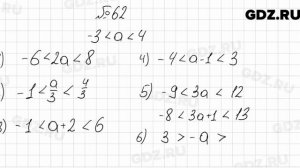 GDZ.RU
№62
-3<a<4
) -6<2a<8
) -1<a/3<4/3
3) -1<a+2<6
4) -4<a-1<3
5) -9<3a<12
-8<3a+1<13
6) 3>-a>
GDZ.RU